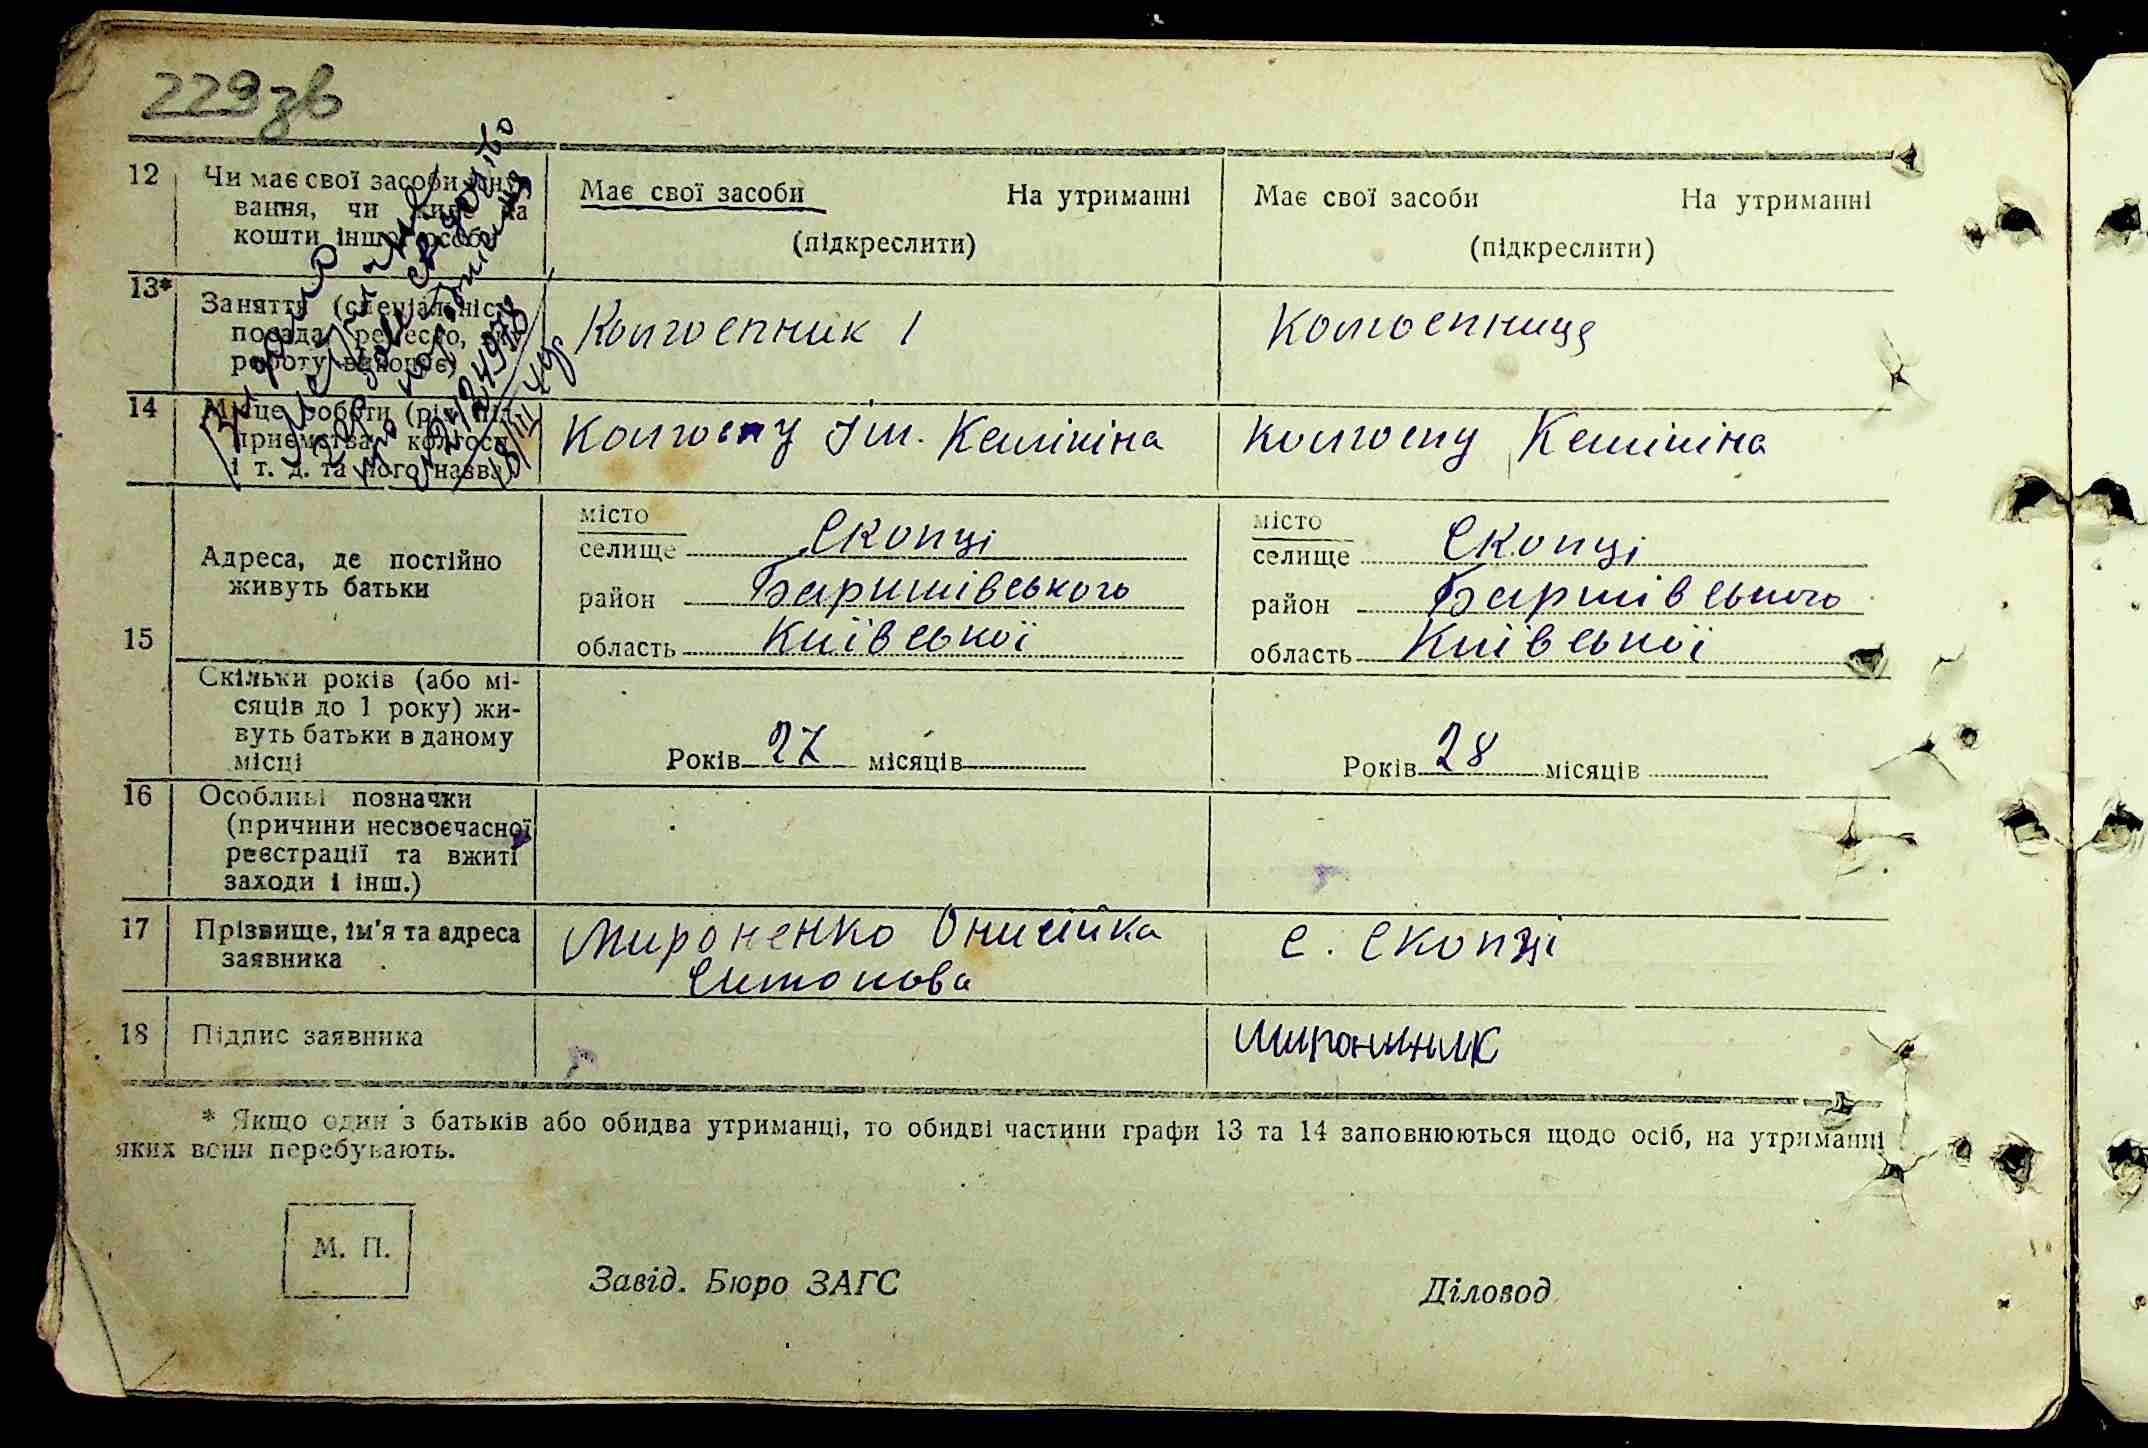 229зв
12 Чи має свої засоби існу-
вання, чи живе на
кошти іншої особи
Має свої засоби На утриманні
(підкреслити)
Має свої засоби На утриманні
(підкреслити)
13* Заняття (спеціальність,
посада, ремесло,
роботу виконує)
Колгоспник 1
Колгоспниця
14 Місце роботи (рід під-
приємства, колгосп
і т. д. та його назва)
Колгоспу ім. Калініна
Колгоспу Калініна
15 Адреса, де постійно
живуть батьки
місто
селище Скопці
район Баришівського
область Київської
місто
селище Скопці
район Баршівського
область Київської
Скільки років (або мі-
сяців до 1 року) жи-
вуть батьки в даному
місці
Років 27 місяців
Років 28 місяців
16 Особливі позначки
(причини несвоєчасної
реєстрації та вжиті
заходи і інш.)
17 Прізвище, ім'я та адреса
заявника
Мироненко Онисійка
с. Скопці
18 Підпис заявника
* Якщо один з батьків або обидва утриманці, то обидві частини графи 13 та 14 заповнюються щодо осіб, на утриманні
яких вони перебувають.
М. П.
Завід. Бюро ЗАГС
Діловод